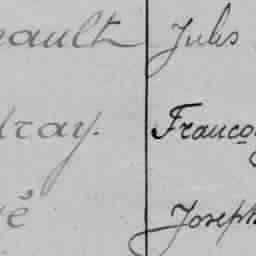 eault Jules
dray. Franço
é Joseph